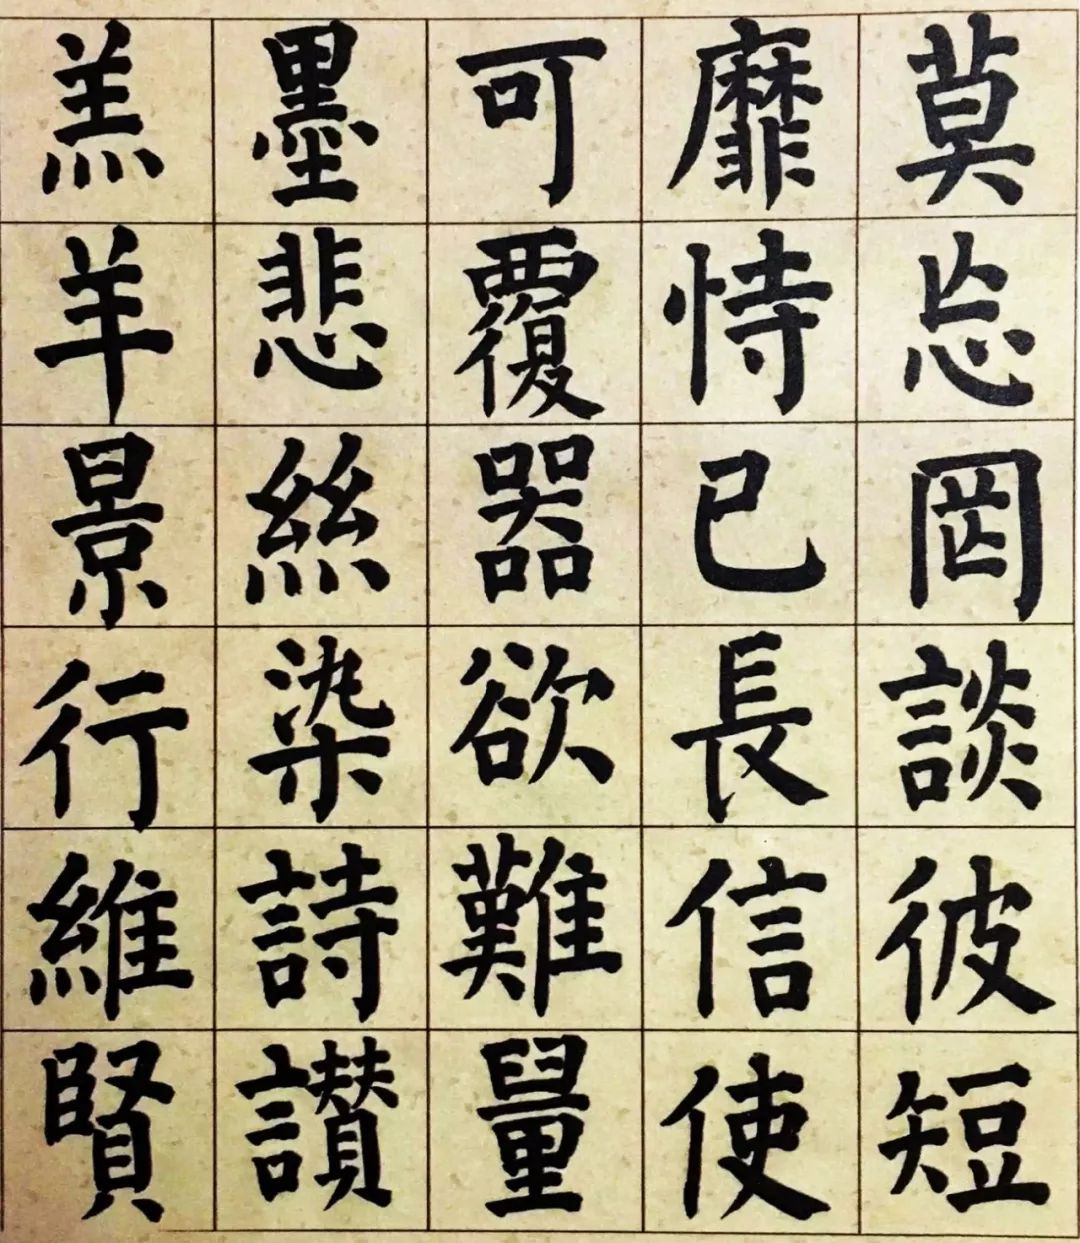 莫忘罔談彼短
靡恃已長信使
可覆器欲難量
墨悲絲染詩讃
羔羊景行維賢